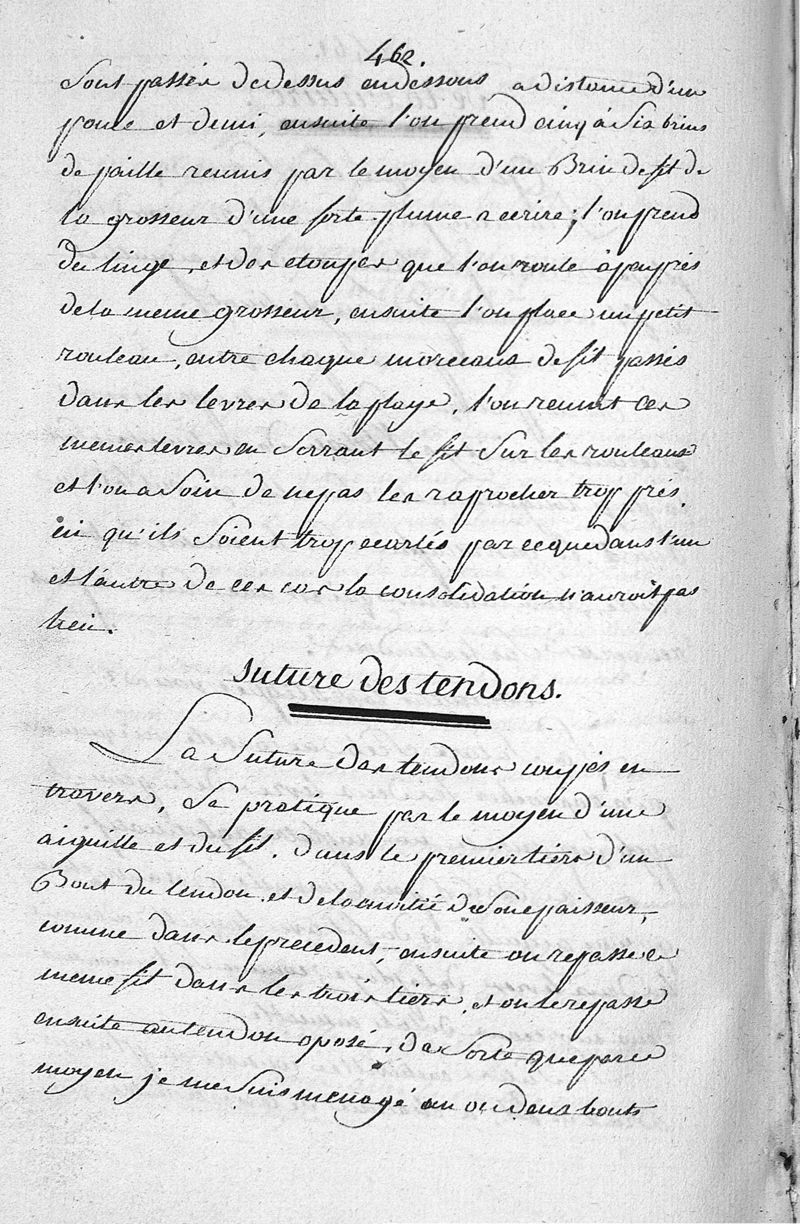 462.
Sont passés de dessus en dessous a distance d'un
pouce et demi, ensuite l'on prend cinq à Six brins
de paille reunis par le moyen d'un Brin de fil de
la grosseur d'une forte plume a ecrire; l'on prend
du linge, et des etoupes que l'on roule à peu près
de la meme grosseur, ensuite l'on place un petit
rouleau, entre chaque morceaux de fil passés
dans les levres de la playe, l'on reunit ces
memes levres en Serrant le fil Sur les rouleaux
et l'on a Soin de ne pas les raprocher trop près,
ni qu'ils Soient trop ecartés par ce que dans l'un
et l'autre de ces cas la consolidation n'auroit pas
lieu.
Suture des tendons.
La Suture des tendons coupés en
travers, Se pratique par le moyen d'une
aiguille et du fil. dans le premier tiers d'un
Bout du tendon, et de la moitié de Son epaisseur,
comme dans le precedent, ensuite on repasse ce
meme fil dans les trois tiers, et on le repasse
ensuite au tendon oposé, de Sorte que par ce
moyen je me Suis menagé un ou deux bouts